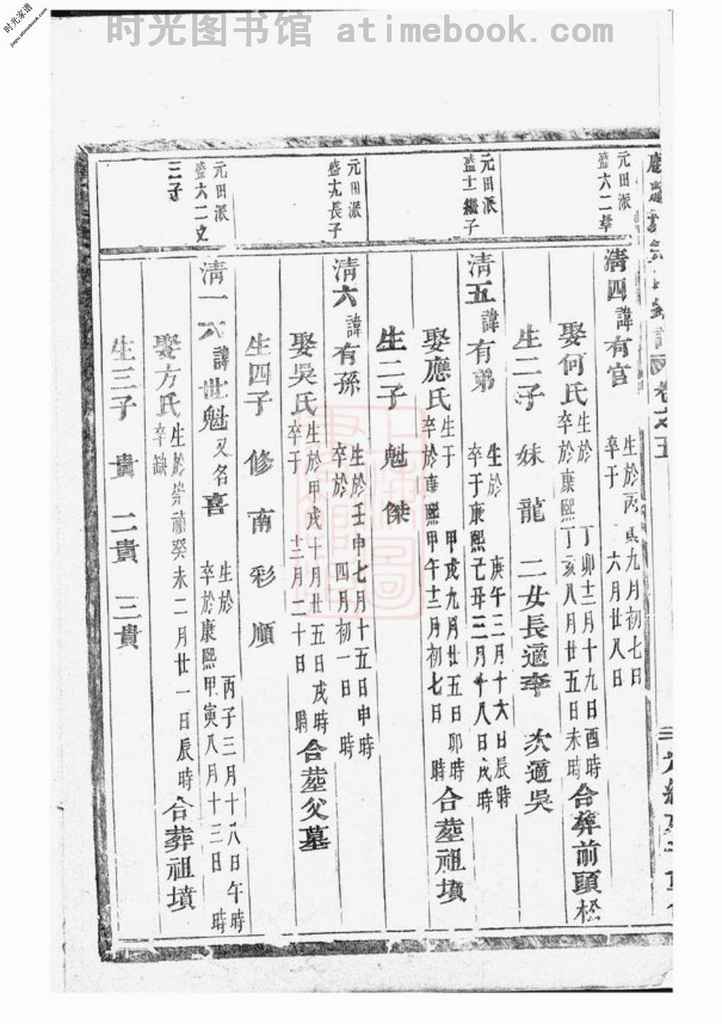 时光图书馆 atimebook.com
时光家谱
元田派
盛六二
清四諱有官
生於丙寅九月初七日
卒于 六月廿八日
娶何氏
生於 丁卯十二月十九日酉時
卒於康熙丁亥八月廿五日未時
合葬前頭松
生二子 妹 龍 二女長適李 次適吳
元田派
盛十一繼子
清五諱有弟
生於 庚午三月十六日辰時
卒于康熙己丑三月十八日戌時
娶應氏
生于 甲戌九月廿五日卯時
卒於康熙甲午十二月初七日 時
合塟祖墳
生二子 魁 傑
元田派
盛九長子
清六諱有孫
生於壬申七月十五日申時
卒於 四月初一日 時
娶吳氏
生於甲戌十月廿五日戌時
卒于 十二月二十日 時
合塟父墓
生四子 修 南 彩 順
元田派
盛六二文
三子
清一六諱世魁又名喜
生於 丙子三月十八日午時
卒於康熙甲寅八月十三日 時
娶方氏
生於崇禎癸未二月廿一日辰時
卒缺
合葬祖墳
生三子 貴 二貴 三貴